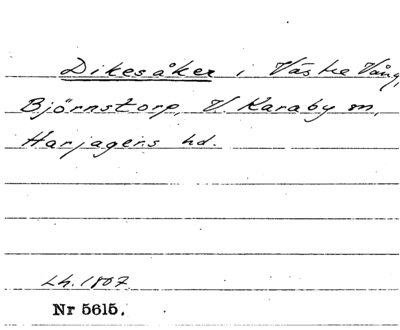 Dikesåker i Västre Vång,
Björnstorp, V. Karaby m,
Harjagers hd.
Lh. 1807
Nr 5615.